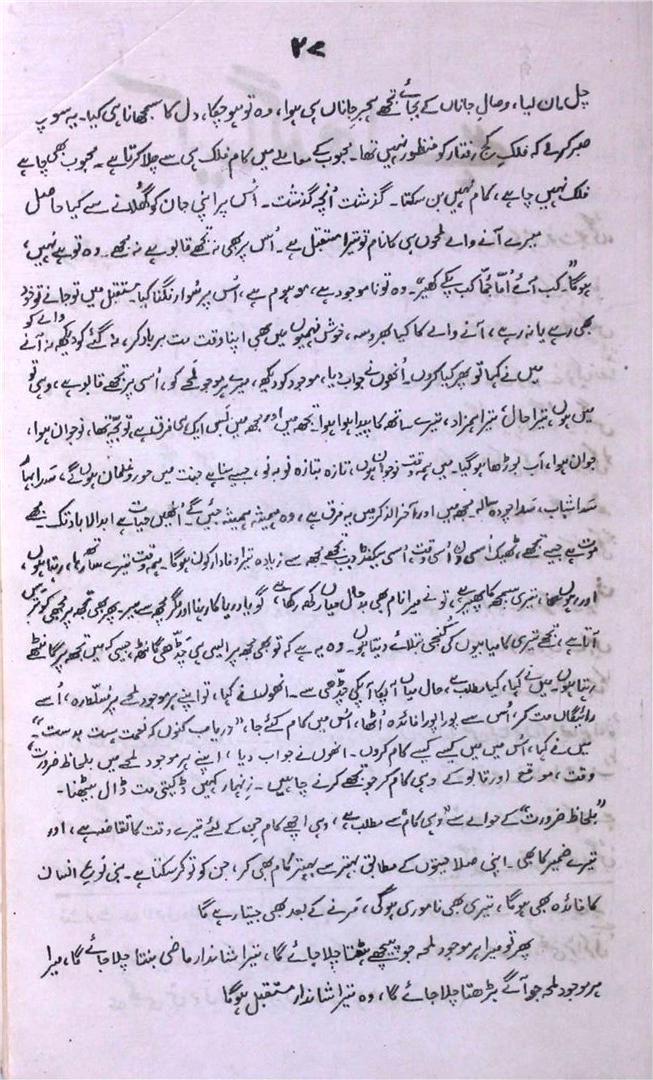 ۲۷
چل مان لیا، وصالِ جاناں کے بجائے تجھے ہجرِ جاناں ہی ہوا، وہ تو ہو چکا، دل کا سمجھانا ہی کیا۔ یہ سوچ
صبر کر لے کہ فلکِ کج رفتار کو منظور نہیں تھا۔ محبوب کے معاملے میں کام فلک ہی سے چلا کرتا ہے۔ محبوب بھی چاہے
فلک نہیں چاہے، کام نہیں بن سکتا۔ گزشت اُنچہ گذشت۔ اُس پر اپنی جان کو گھلانے سے کیا حاصل
میرے آنے والے لمحوں ہی کا نام تو تیرا مستقبل ہے۔ اُس پر بھی نہ تجھے قابو ہے نہ مجھے۔ وہ تو ہے نہیں،
ہوگا "کب آئے اُمّا جمّا کب پکے کھیر"۔ وہ تو نا موجود ہے، موہوم ہے، اُس پر سُوار ٹنگنا کیا۔ مستقبل میں تو جانے تو خود
بھی رہے یا نہ رہے، آنے والے کا کیا بھروسہ، خوش فہمیوں میں بھی اپنا وقت مت برباد کر، نہ گئے کو دیکھ نہ آنے والے کو
میں نے کہا تو پھر کیا کروں۔ اُنھوں نے جواب دیا، موجود کو دیکھ، میرے موجود لمحے کو، اُسی پر تجھے قابو ہے، وہی تو
میں ہوں تیرا حال، تیرا ہمزاد، تیرے ساتھ کا پیدا ہوا ہوا۔ تجھ میں اور مجھ میں بس ایک ہی فرق ہے، تو بچّہ تھا، نوجوان ہوا،
جوان ہوا، اَب بوڑھا ہو گیا۔ میں ہمہ وقت نوجواں ہوں، تازہ بتازہ نو بہ نو، جیسے سنا ہے جنت میں حور و غلمان ہوں گے، سَدا بہار
سَدا شباب، سَدا چودہ سالہ۔ مجھ میں اور آخر الذکر میں یہ فرق ہے، وہ ہمیشہ ہمیشہ جئیں گے۔ اُنھیں حیات ہے ابد الآباد تک۔ مجھے
موت ہے جیسے تجھے، ٹھیک اُسی دن، اُسی وقت، اُسی سیکنڈ جب تجھے۔ مجھ سے زیادہ تیرا وفادار کون ہوگا۔ ہمہ وقت تیرے ساتھ رہا، رہتا ہوں،
اور رہوں گا، تیری سمجھ کا پھیر ہے، تو نے میرا نام بھی حال میاں رکھ رکھا ہے، گویا دریا کا رہنا اور مگر مچھ سے بیر۔ پھر بھی تجھ پر مجھی کو ترس
آتا ہے، تجھے تیری کامیابیوں کی کنجی بتلائے دیتا ہوں۔ وہ یہ ہے کہ تو بھی مجھ پر ایسی ہی چڈّھی گانٹھ، جیسی کہ میں تجھ پر گانٹھے
رہتا ہوں۔ میں نے کہا، کیا مطلب ہے، حال میاں آپ کا آپ کی چڈّھی سے۔ انھوں نے کہا، تو اپنے ہر موجود لمحے پر مُسلّط رہ، اُسے
رائیگاں مت کر، اُس سے پورا پورا فائدہ اُٹھا، اُس میں کام کئے جا، "دریاب کنوں کہ نعمت ہست بدست"۔
میں نے کہا، اُس میں میں کیسے کیسے کام کروں۔ انھوں نے جواب دیا، اپنے ہر موجود لمحے میں بلحاظ ضرورتِ
وقت، موقع اور قابو کے وہی کام کر جو تجھے کرنے چاہئیں۔ زنہار کہیں ڈکیتی مت ڈال بیٹھنا۔
"بلحاظ ضرورت" کے حوالے سے "وہی کام" سے مطلب ہے، وہی اچھے کام جن کے لئے تیرے وقت کا تقاضہ ہے، اور
تیرے ضمیر کا بھی۔ اپنی صلاحیتوں کے مطابق بہتر سے بہتر کام بھی کر، جن کو تو کر سکتا ہے۔ بنی نوعِ انسان
کا فائدہ بھی ہوگا، تیری بھی ناموری ہوگی، مَرنے کے بعد بھی جیتا رہے گا
پھر تو میرا ہر موجود لمحہ جو پیچھے ہٹتا چلا جائے گا، تیرا شاندار ماضی بنتا چلا جائے گا، میرا
ہر موجود لمحہ جو آگے بڑھتا چلا جائے گا، وہ تیرا شاندار مستقبل ہوگا